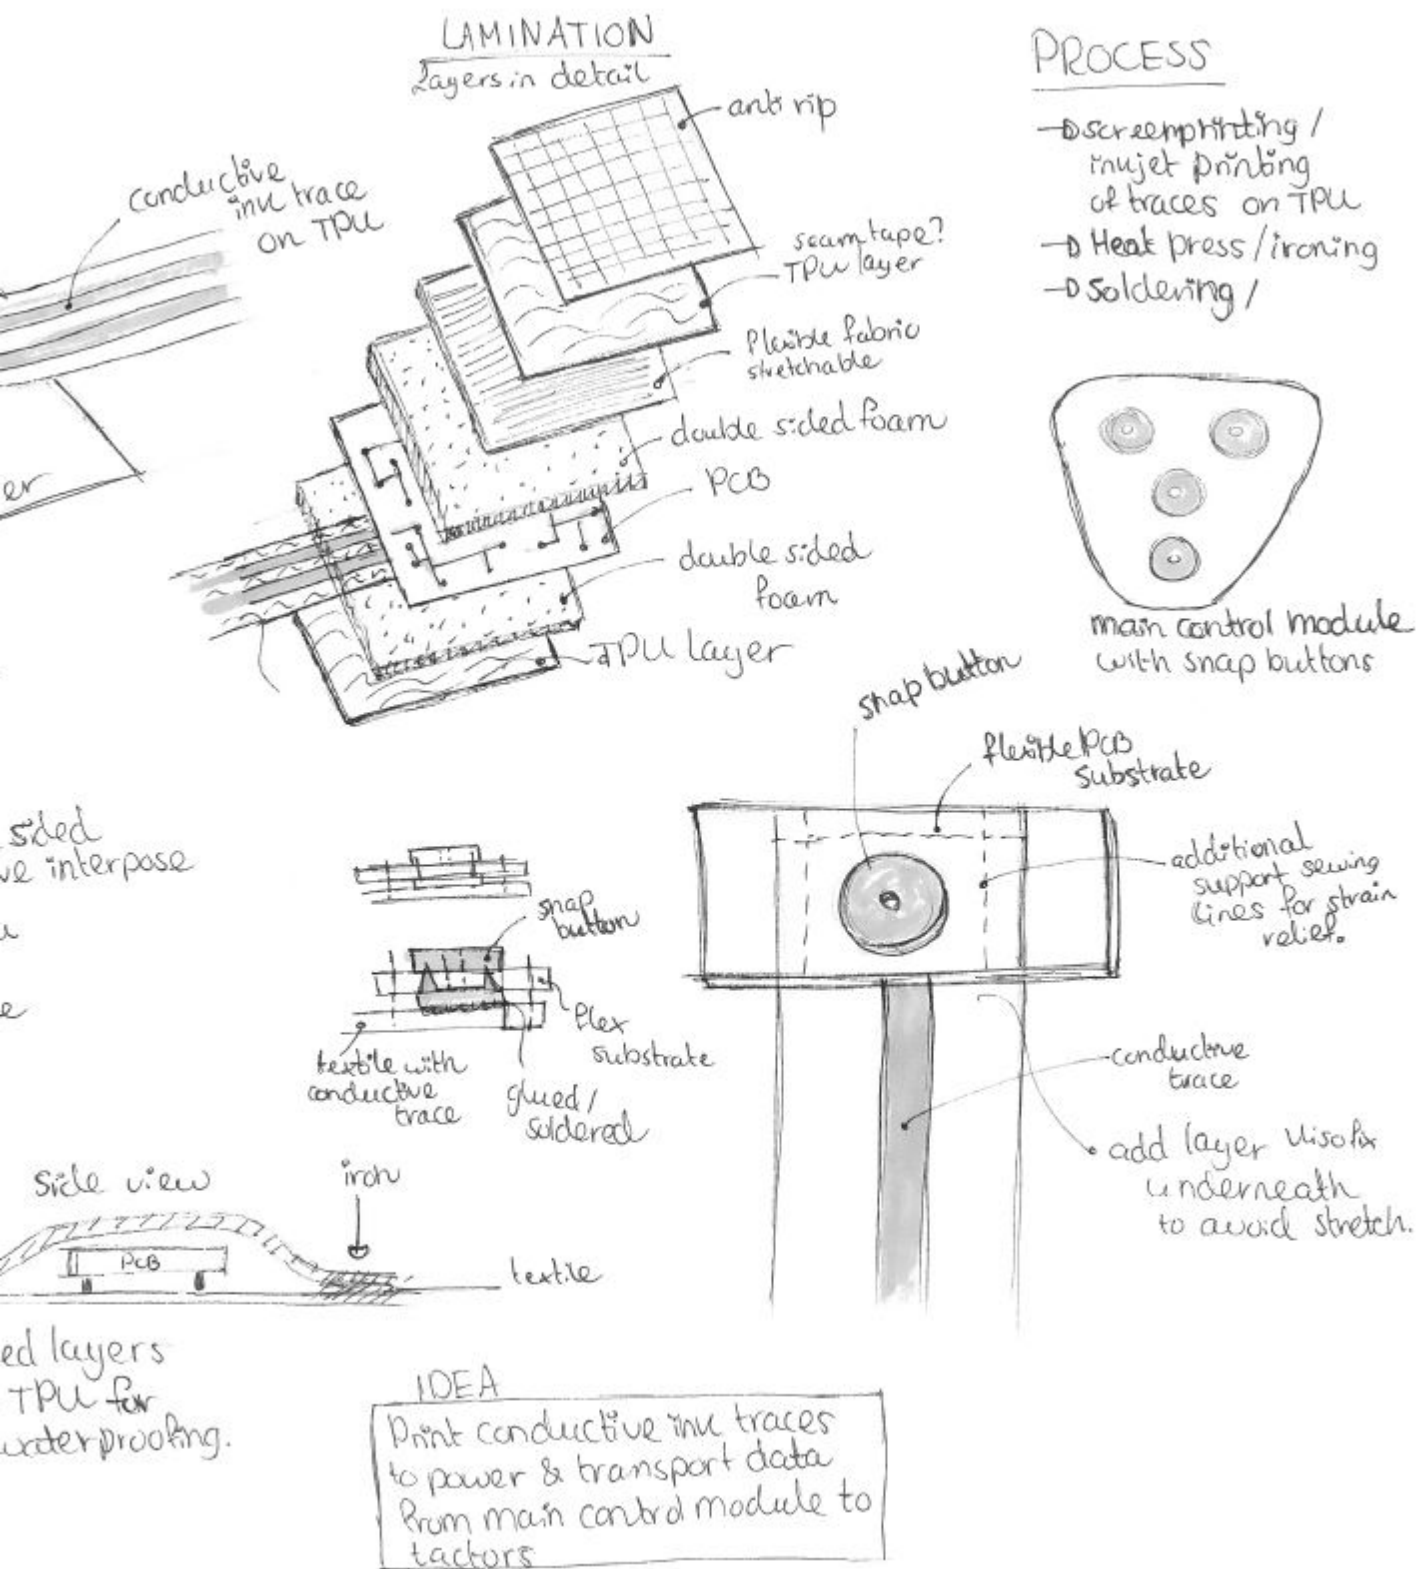 LAMINATION
Layers in detail
anti rip
conductive
ink trace
on TPU
seam tape?
TPU layer
flexible fabric
stretchable
double sided foam
PCB
double sided
foam
TPU layer
er
PROCESS
screenprinting /
inkjet printing
of traces on TPU
Heat press/ironing
Soldering /
main control module
with snap buttons
snap button
flexible PCB
substrate
additional
support sewing
lines for strain
relief.
conductive
trace
add layer Vlisofix
underneath
to avoid stretch.
sided
ve interpose
e
snap
button
flex
substrate
textile with
conductive
trace
glued/
soldered
Side view
iron
PCB
textile
ed layers
TPU for
waterproofing.
IDEA
Print conductive ink traces
to power & transport data
from main control module to
tactors